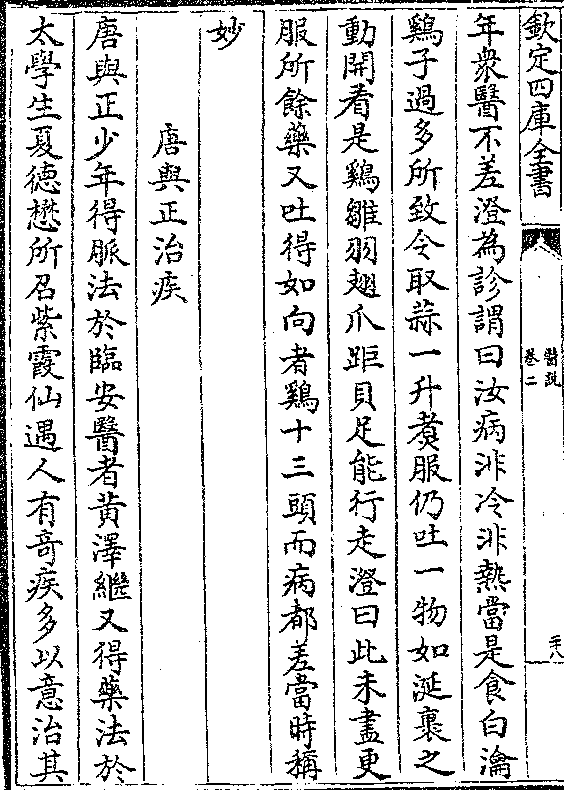 欽定四庫全書
醫說
卷二
三十八
年衆醫不差澄為診謂曰汝病非冷非熱當是食白瀹
鷄子過多所致令取蒜一升煑服仍吐一物如涎裹之
動開看是鷄雛羽翅爪距具足能行走澄曰此未盡更
服所餘藥又吐得如向者鷄十三頭而病都差當時稱
妙
唐與正治疾
唐與正少年得脈法於臨安醫者黃澤繼又得藥法於
太學生夏德懋所召紫霞仙遇人有奇疾多以意治其